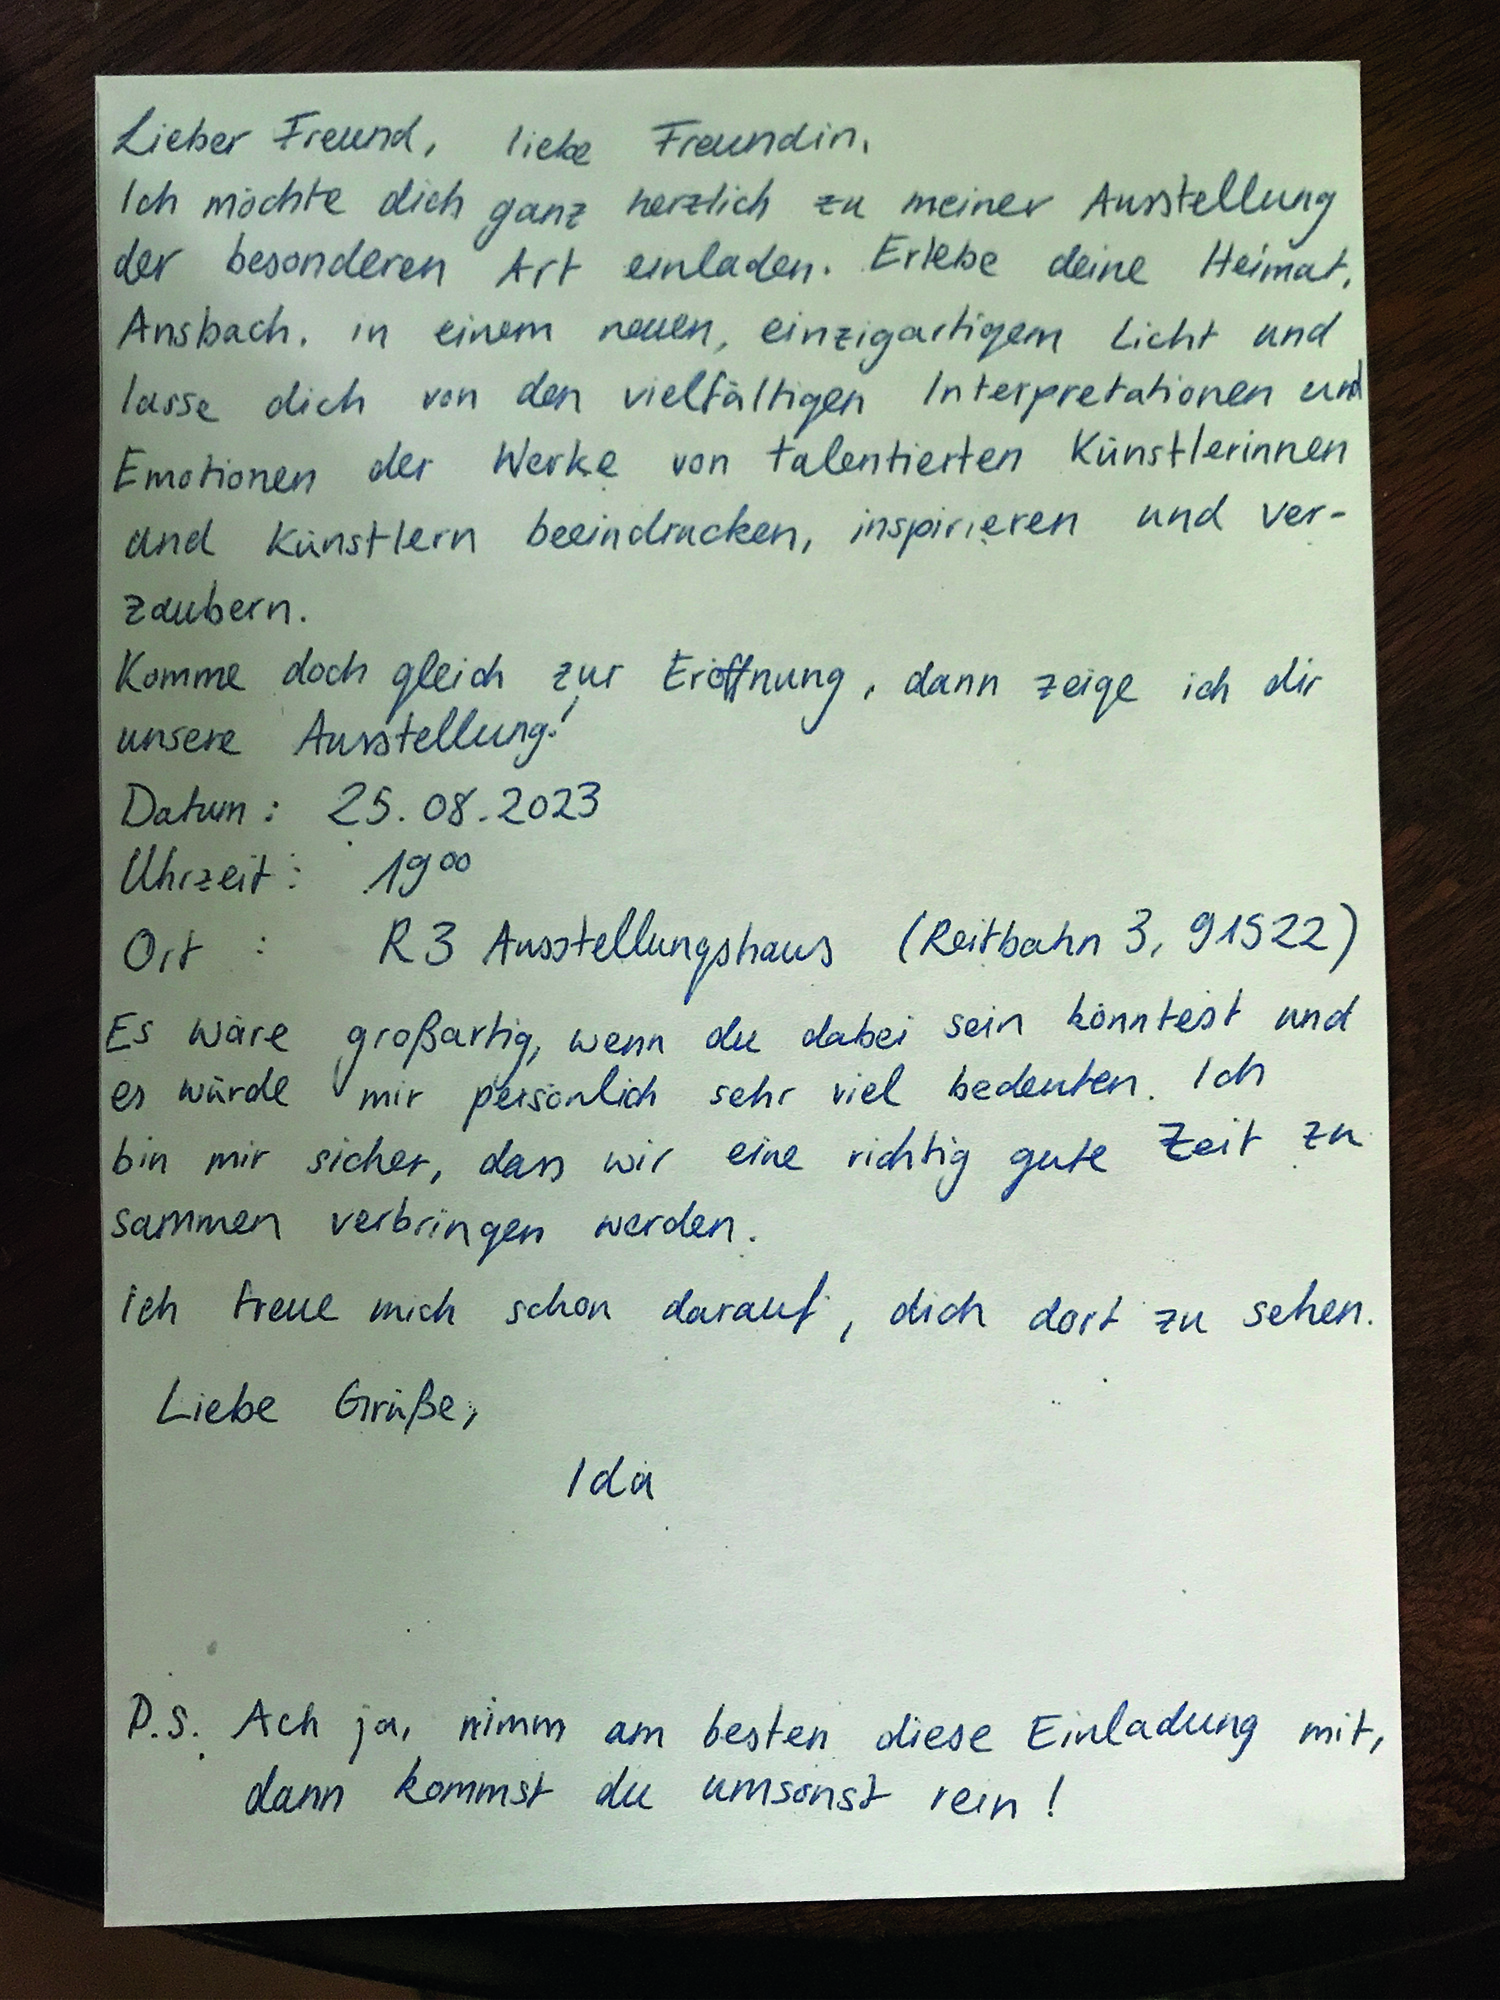 Lieber Freund, liebe Freundin,
Ich möchte dich ganz herzlich zu meiner Ausstellung
der besonderen Art einladen. Erlebe deine Heimat,
Ansbach, in einem neuen, einzigartigem Licht und
lasse dich von den vielfältigen Interpretationen und
Emotionen der Werke von talentierten Künstlerinnen
und Künstlern beeindrucken, inspirieren und ver-
zaubern.
Komme doch gleich zur Eröffnung, dann zeige ich dir
unsere Ausstellung!
Datum: 25.08.2023
Uhrzeit: 19⁰⁰
Ort : R3 Ausstellungshaus (Reitbahn 3, 91522)
Es wäre großartig, wenn du dabei sein könntest und
es würde mir persönlich sehr viel bedeuten. Ich
bin mir sicher, dass wir eine richtig gute Zeit zu
sammen verbringen werden.
Ich freue mich schon darauf, dich dort zu sehen.
Liebe Grüße,
Ida
P.S. Ach ja, nimm am besten diese Einladung mit,
dann kommst du umsonst rein!